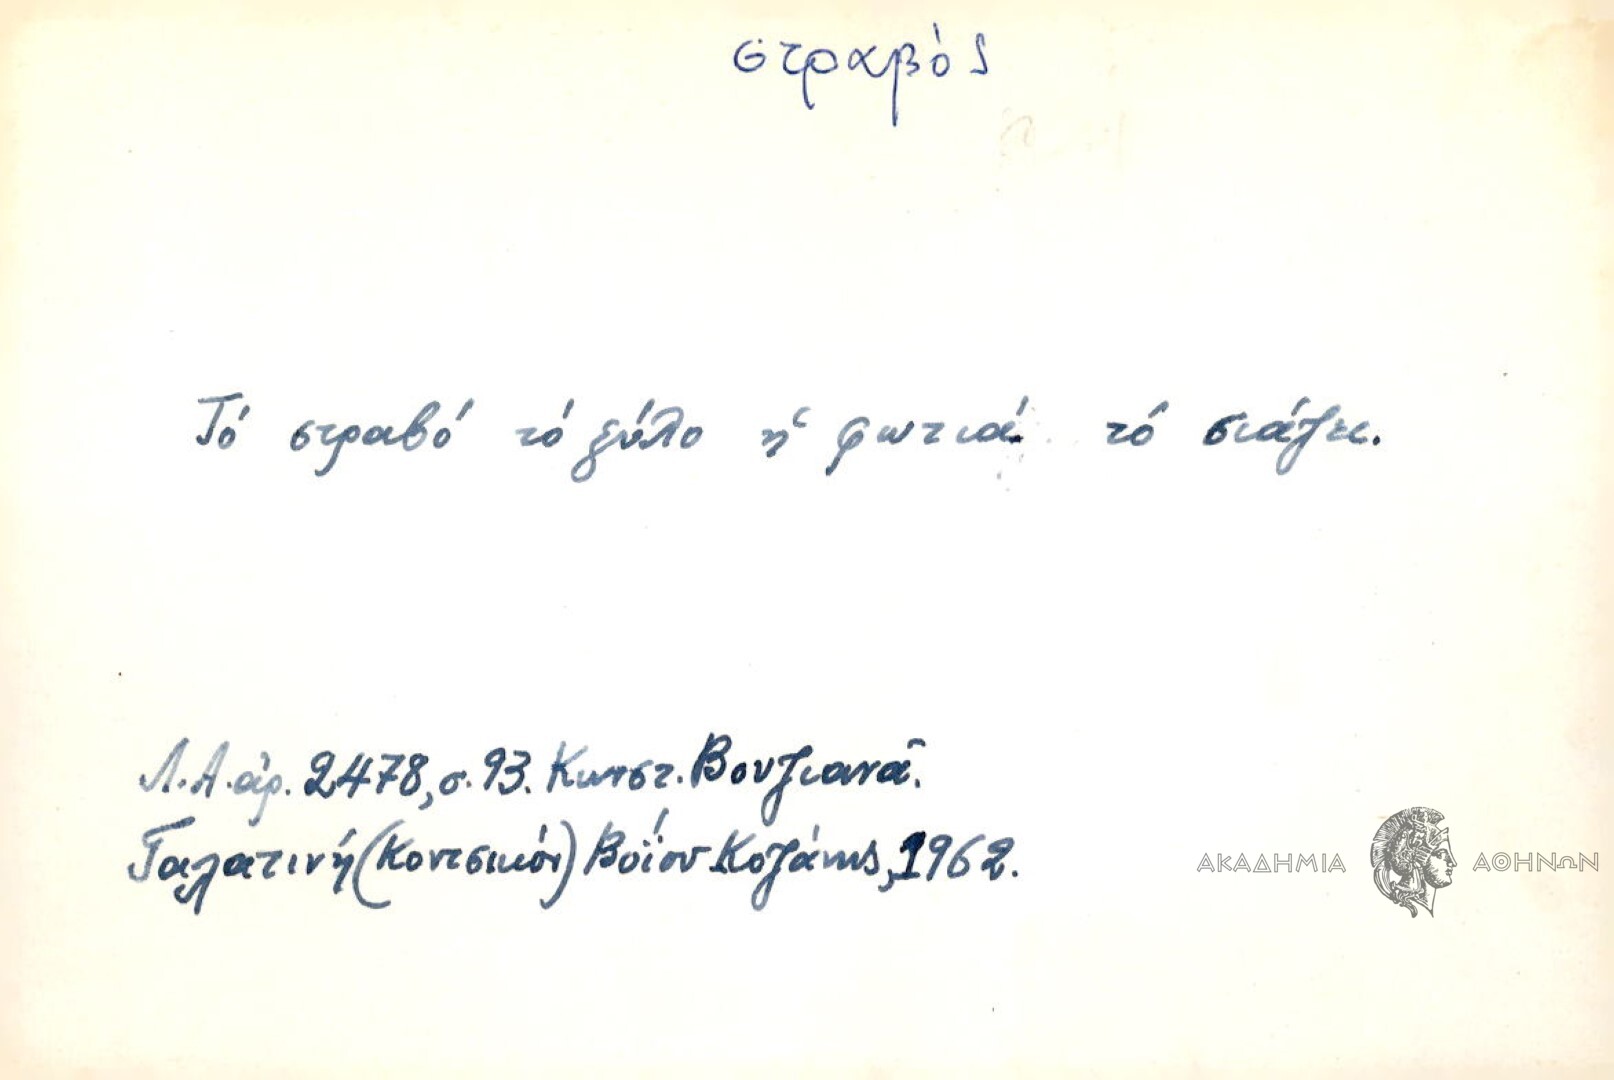 στραβός
Τό στραβό τό ξύλο ἡ φωτιά τό σιάζει.
Λ.Α. ἀρ. 2478, σ. 93. Κωνστ. Βουζιανᾶ.
Γαλατινή (Κοντσικόν) Βοΐου Κοζάνης, 1962.
ΑΚΑΔΗΜΙΑ ΑΘΗΝΩΝ